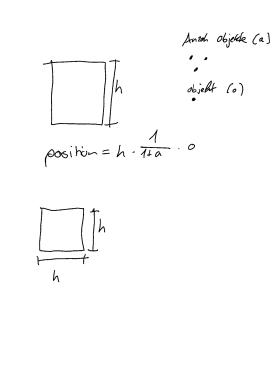 Anzah objekte (a)
h
objekt (o)
position = h · 1/(1+a) · o
h
h